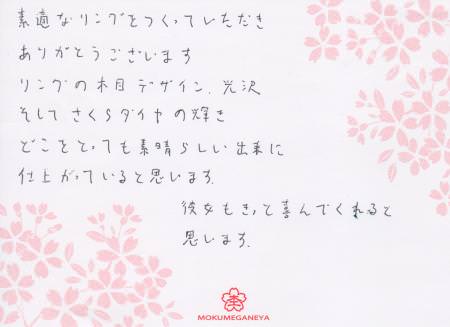 素適なリングをつくっていただき
ありがとうございます
リングの木目デザイン、光沢
そしてさくらダイヤの輝き
どこをとっても素晴らしい出来に
仕上がっていると思います。
彼女もきっと喜んでくれると
思います。
MOKUMEGANEYA